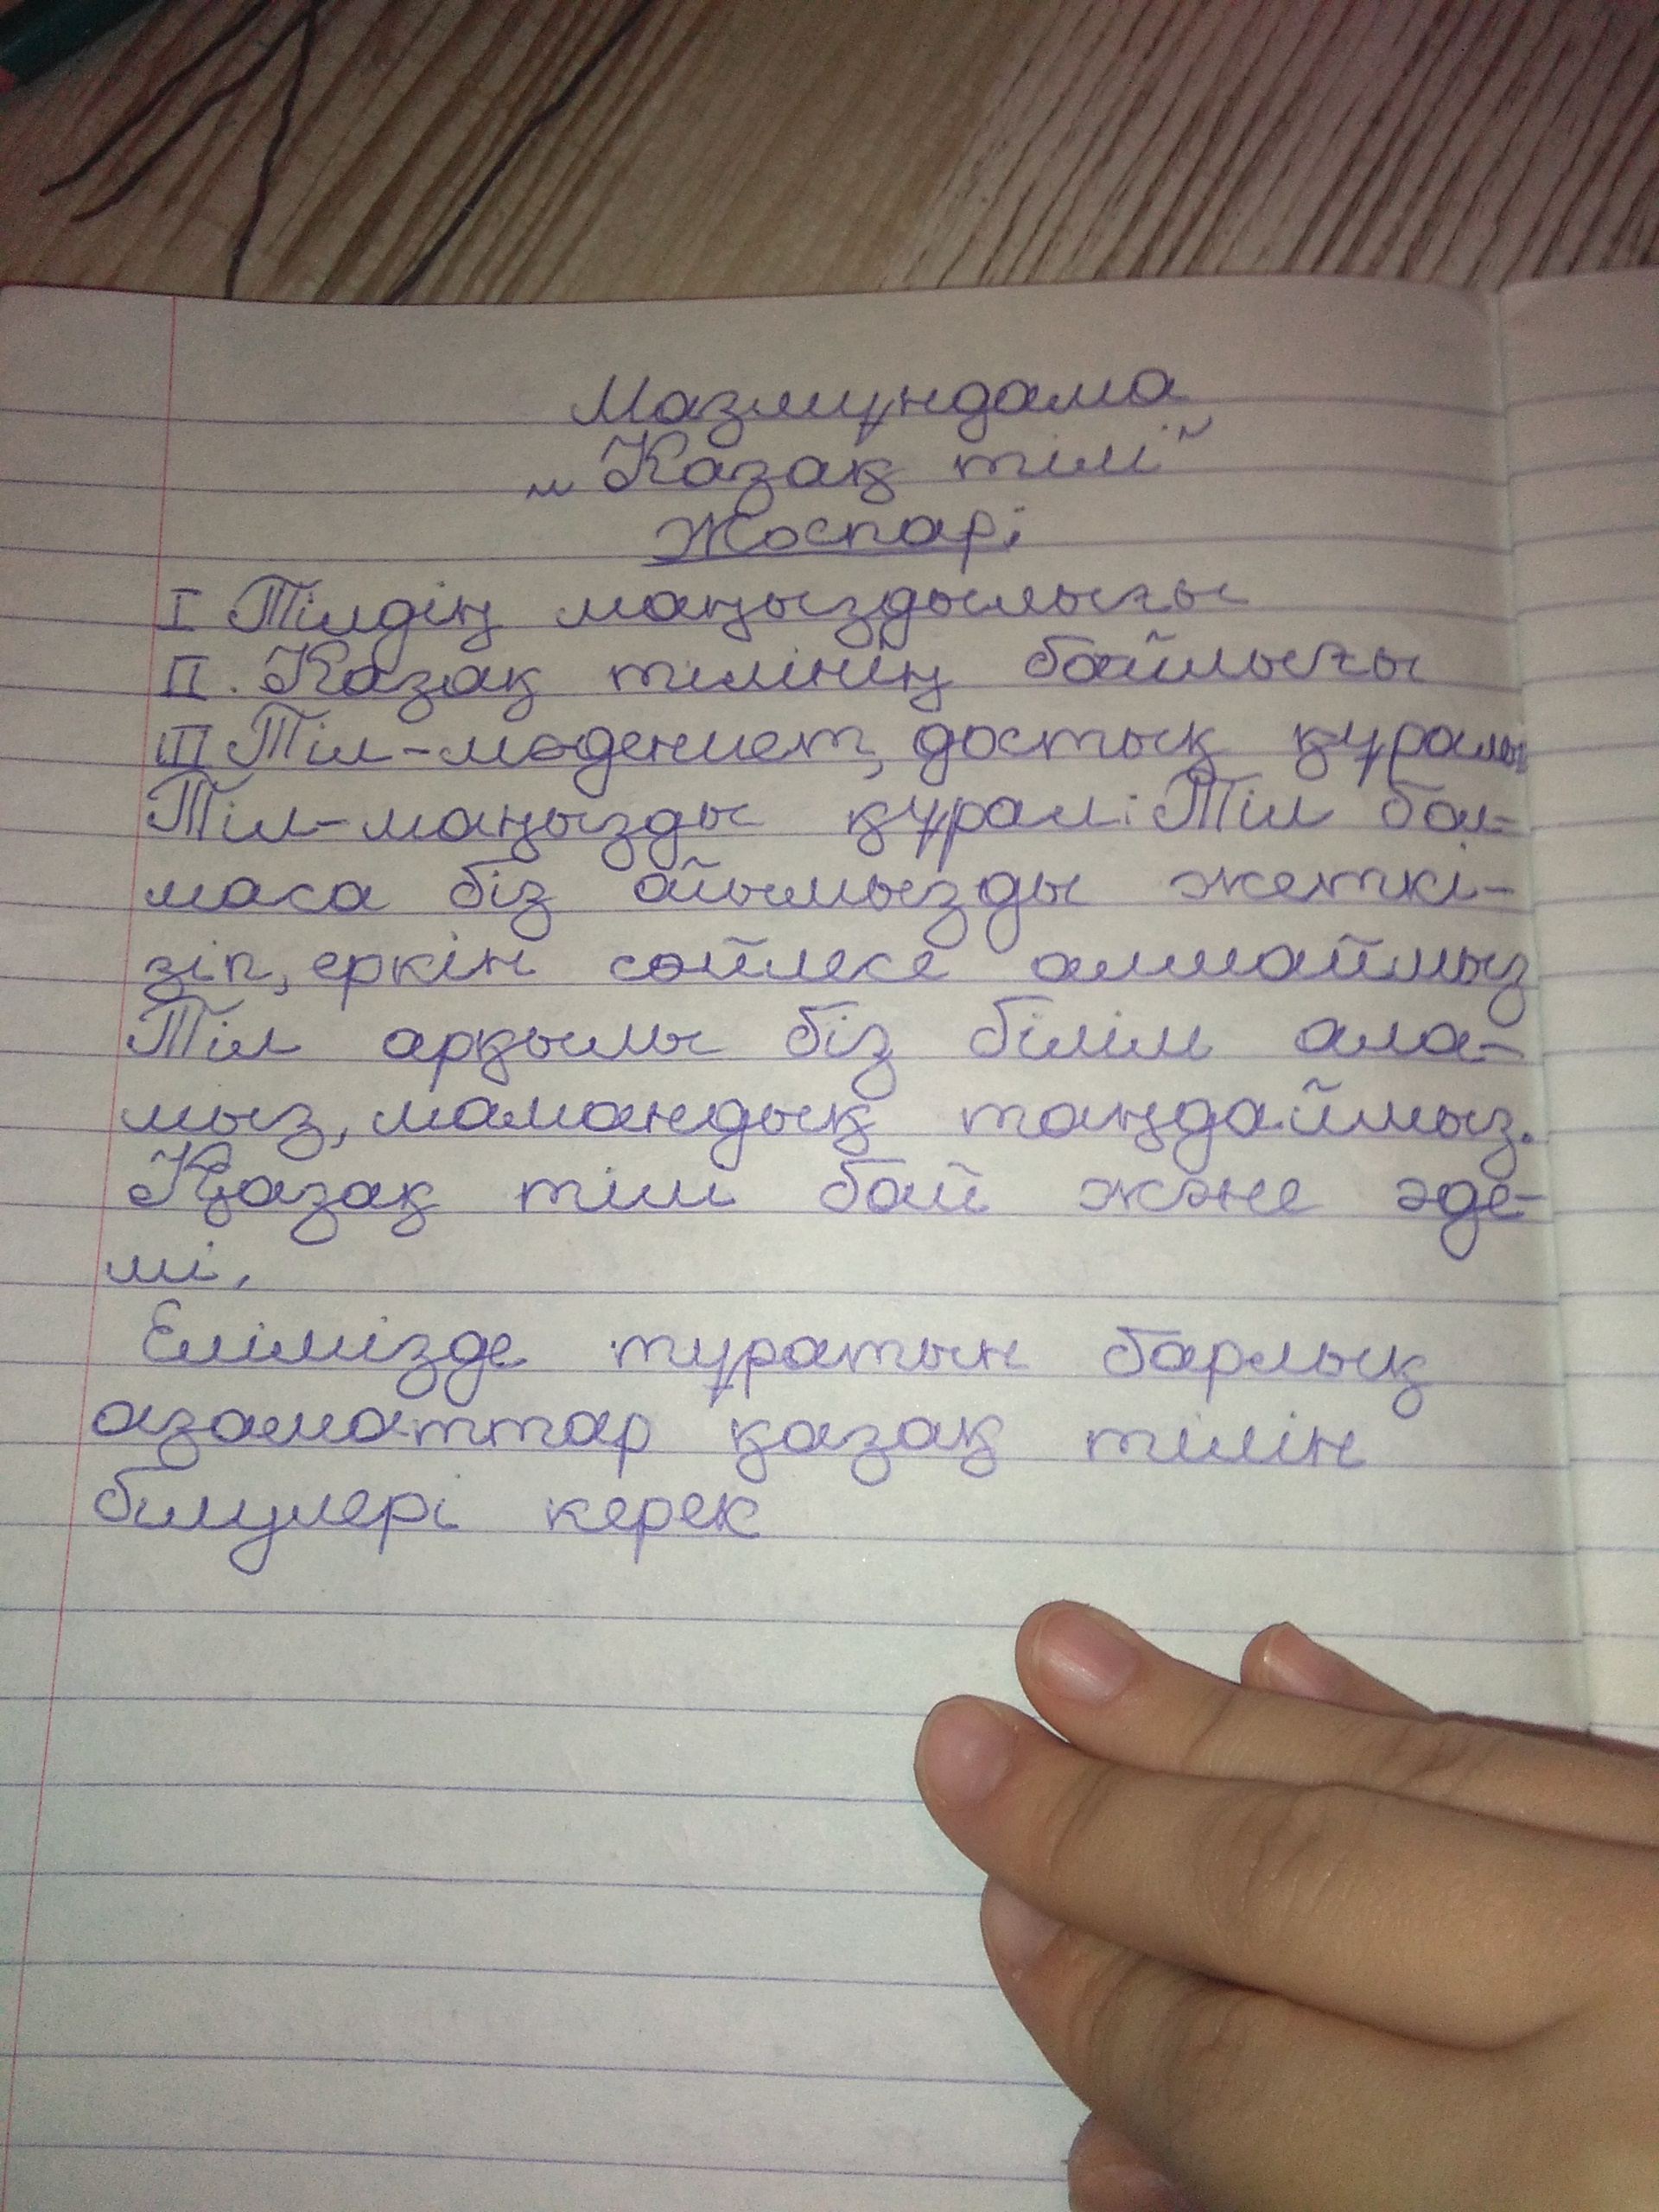 Мазмұндама
„Казақ тілі"
Жоспарі
I Тілдің маңыздылығы
II. Казақ тілінің байлығы
III Тіл-мәдениет, достық құралы
Тіл-маңызды құрал. Тіл бол-
маса біз айымызды жеткі-
зіп, еркін сөйлесе алмаймыз
Тіл арқылы біз білім ала-
мыз, мамандық таңдаймыз.
Қазақ тілі бай және әде-
мі.
Елімізде тұратын барлық
азаматтар қазақ тілін
білулері керек